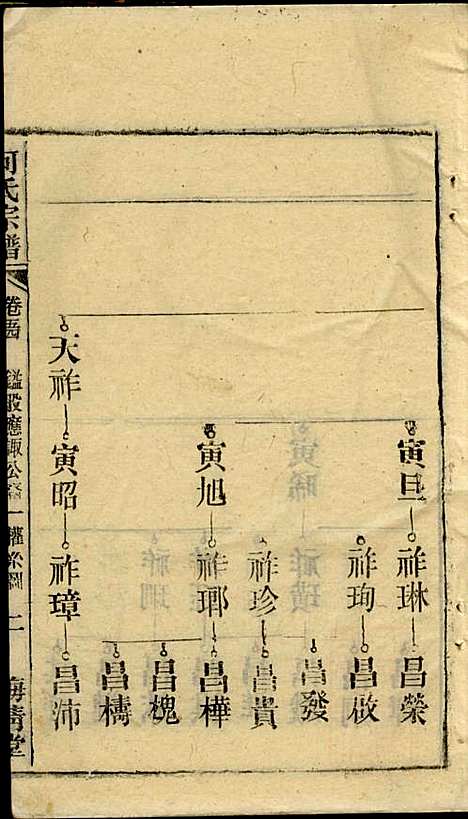 寅旦 祚琳 昌榮
祚珣 昌啟
昌發
祚珍 昌貴
寅旭 祚瑯 昌樺
昌槐
昌檮
天祚 寅昭 祚璋 昌沛
何氏宗譜
卷
鑑股應諏公
二
海清堂